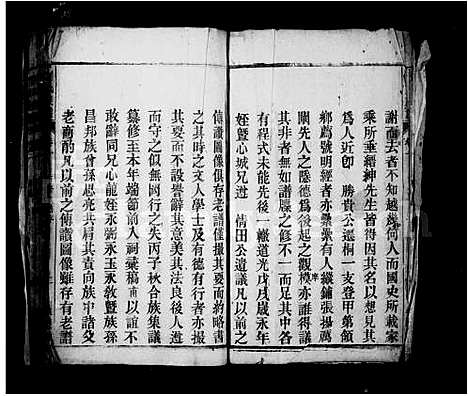 謝而去者不知越幾何人而國史所載家
乘所垂縉紳先生皆得因其名以想見其
為人近卽 勝貴公遷桐一支登甲第領
鄉薦號明經者亦纍纍有人鋪張揚萬
闡先人之隱德為後起之觀標亦誰得議
其非者無如譜牒之修不一而足其中各
有程式未能先後一轍道光戊戌歲永年
姪暨心城兄遵 倩田公遺議凡以前之
傳讚圖像俱存老譜僅撮其要而約略書
之其時文人學士及有德有行者亦撮
其要而不設譽辭其意美其法良後人遵
而守之似無岡行之失丙子秋合族集議
纂修至本年端節前入祠彙稿甫以誼不
敢辭同兄心龍姪永弼永玉永敎暨族
昌邦族曾孫思亮共肩其責向族中諸父
老商酌凡以前之傳讚圖像雖存有老譜